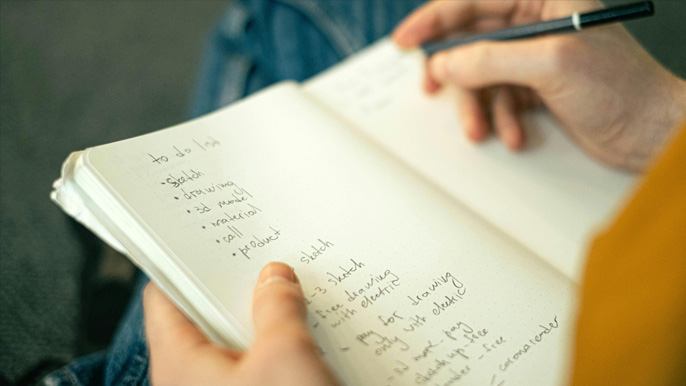 to do list
• sketch
• drawing
• 3d model
• material
• call
• product
sketch
-3 sketch
- free drawing
with electric
- pay for drawing
only with electric
no more pay
sketch up free
- free